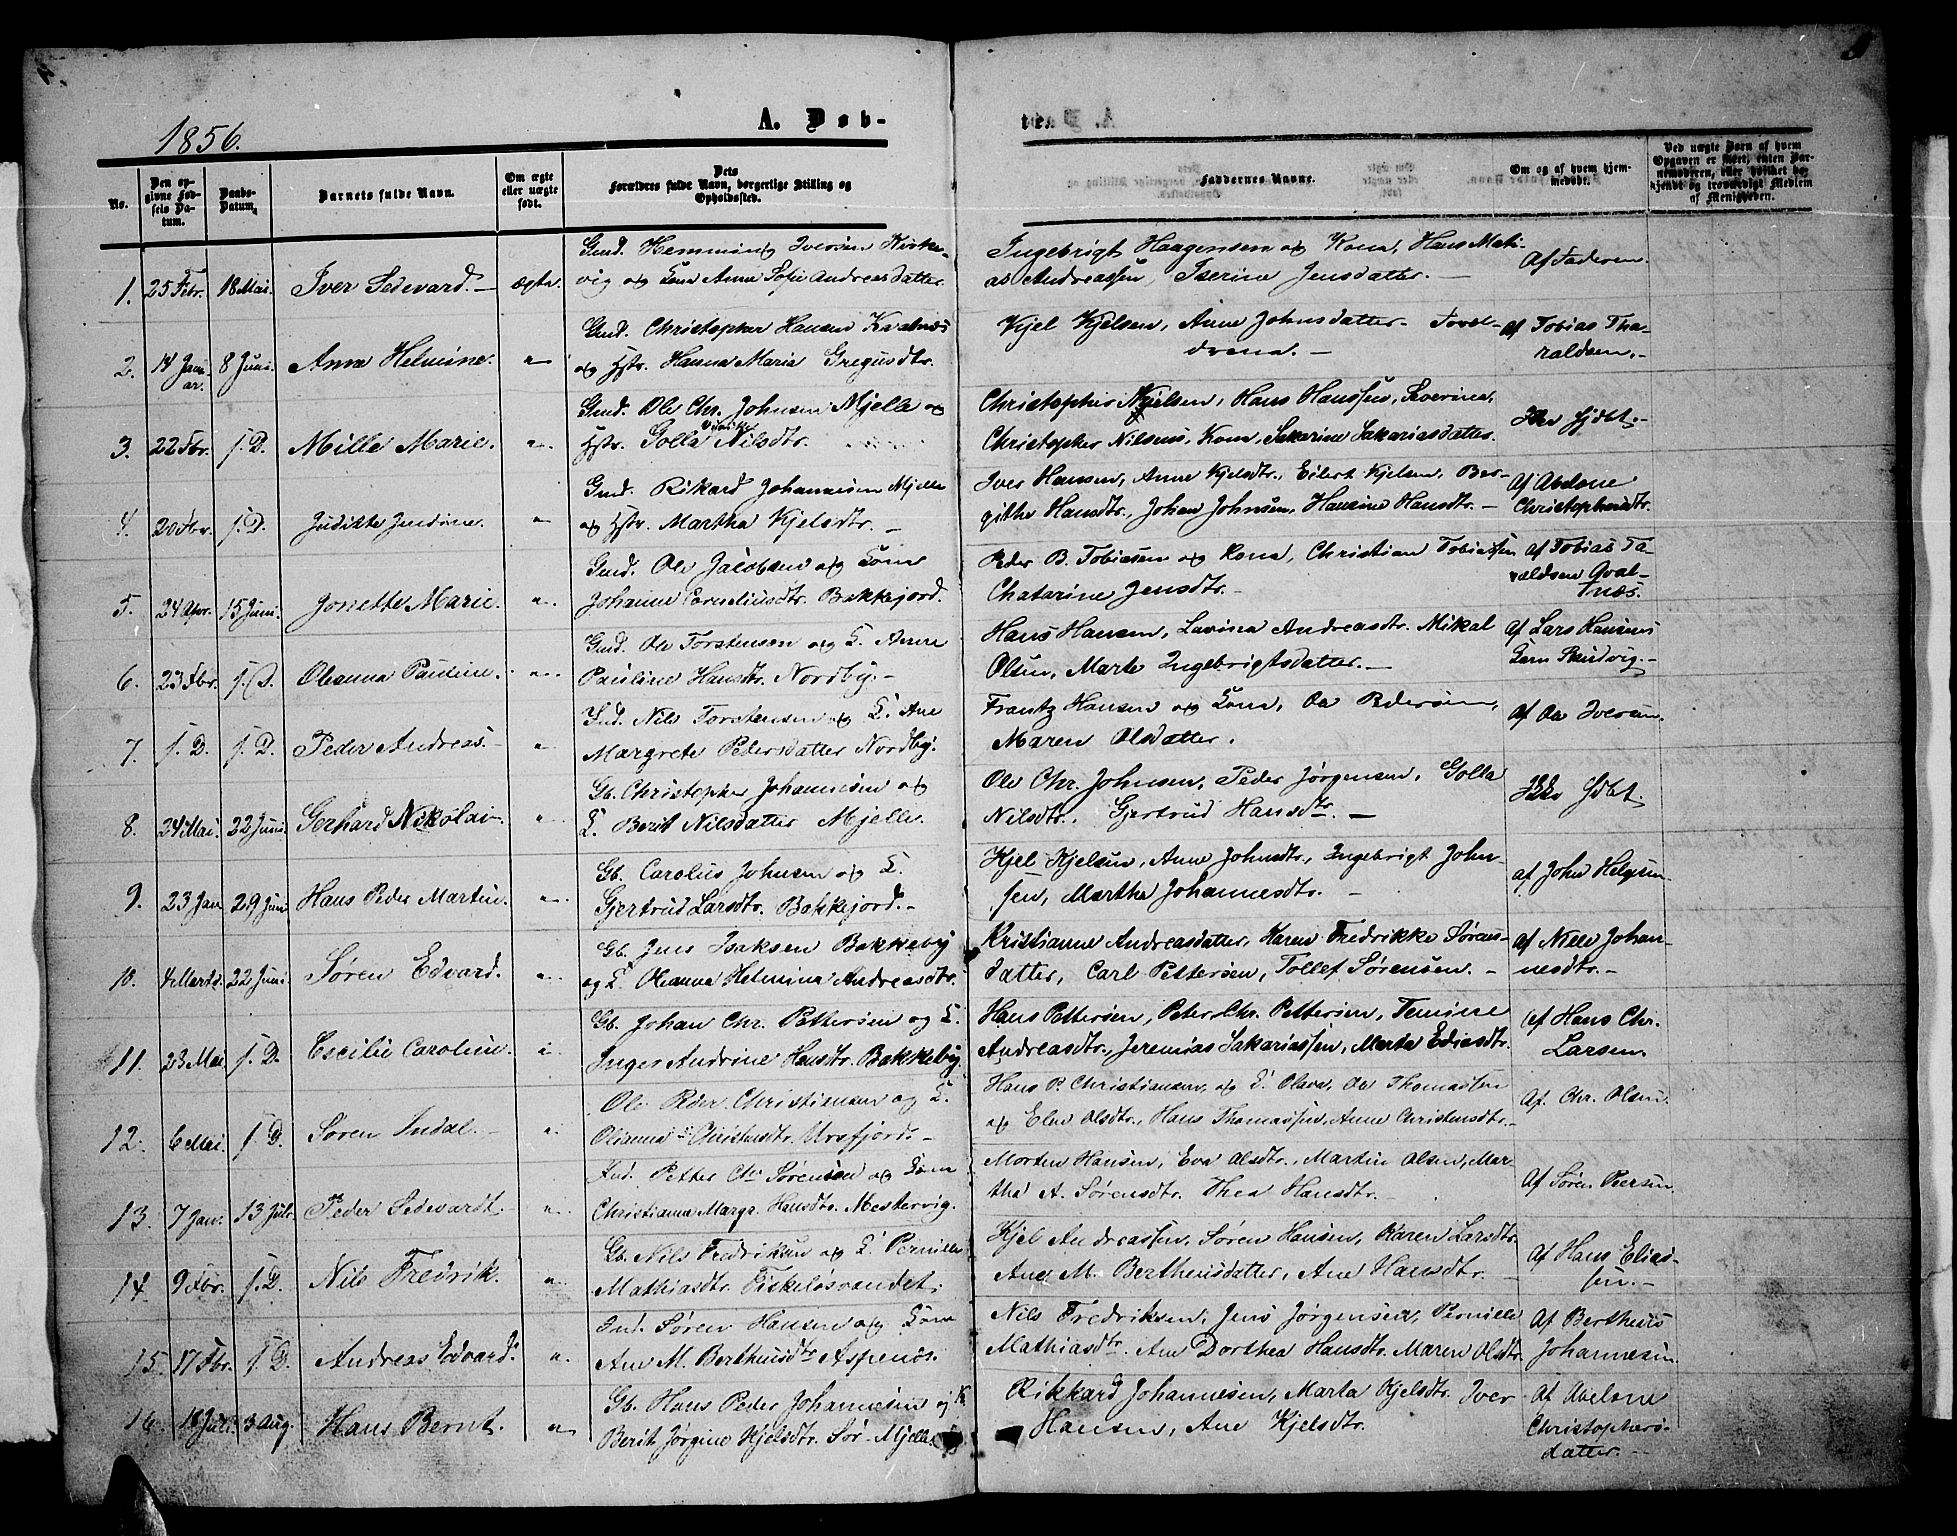 1856.
A. Døb-
No.
Den op-
givne Fød-
sels Da-
tum.
Daabs-
Datum.
Barnets fulde Navn.
Om ægte
eller uægte
født.
Dets
Forældres fulde Navn, borgerlige Stilling og
Opholdssted.
Faddernes Navne.
Om og af hvem hjem-
medøbt.
Ved uægte Børn af hvem
Opgaven er skeet, enten Bar-
nemoderen, eller hvilket be-
kjendt og troværdigt Medlem
af Menigheden.
1. 25 Febr. 18 Mai. Iver Sedevard. – ægte.
Gmd. Hemming Iversen Kirke-
vig og Kone Anne Sofie Andreasdatter.
Ingebrigt Haagensen og Kona, Hans Mathi-
as Andreassen, Iserine Jensdatter. –
Af Faderen
2. 14 Janu-
ar. 8 Juni. Anna Helmine. "
Gmd. Christopher Hansen Kvalnæs
og Hstr. Hanna Maria Gregusdtr.
Kjel Kjelsen, Anne Johnsdatter.
af Tobias Tha-
raldsen. –
3. 22 Fbr. s. D. Mille Marie. "
Gmd. Ole Chr. Johnsen Mjelle og
Hstr. Golla Nilsdtr.
Christopher Kjelsen, Hans Hanssen, Severine,
Christopher Nilsens Kone, Sakarine Sakariasdatter.
Ikke hjdbt. –
4. 20 Fbr. s. D. Judikte Jendine. "
Gmd. Rikard Johannesen Mjelle
og Hstr. Martha Kjelsdtr. –
Iver Hansen, Anne Kjelsdtr., Eilert Kjelsen, Ber-
githe Hansdtr., Johan Johnsen, Hansine Hansdtr. –
Af Abelone
Christophersdtr.
5. 24 Apr. 15 Juni. Jonette Marie. "
Gmd. Ole Jacobsen og Kone
Johanne Corneliusdtr. Bakkejord.
Peder B. Tobiasen og Kona, Christian Tobiassen
Chatarine Jensdtr. –
af Tobias Ta-
raldsen Qval-
næs.
6. 23 Fbr. s. D. Oleanna Pauline. "
Gmd. Ole Torstensen og K. Anne
Pauline Hansdtr. Nordby. –
Hans Hansen, Lavina Andreasdtr. Mikal
Olsen, Marte Ingebrigtsdatter. –
af Lars Hansens
7. s. D. s. D. Peder Andreas. – "
Ind. Nils Torstensen og K. Ane
Margrete Pedersdatter Nordby.
Frantz Hansen og Kone, Oa Pedersen,
Maren Olsdatter.
af Oa Iversen.
8. 24 Mai. 22 Juni. Gerhard Nikolai. – "
Gb. Christopher Johannesen og
K. Berit Nilsdatter Mjelle.
Ole Chr. Johnsen, Peder Jørgensen, Golla
Nilsdtr. Gjertrud Hansdtr. –
Ikke hjdbt.
9. 23 Jan 29 Juni Hans Peder Martin. "
Gb. Carolius Johnsen og K.
Gjertrud Larsdtr. Bakkejord. –
Kjel Kjelsen, Anne Johnsdtr., Ingebrigt John-
sen, Martha Johannesdtr. –
af John Helgesen
10. 4 Marts. 22 Juni Søren Edvard. "
Gb. Jens Isaksen Bakkeby
og K. Oleanna Helmina Andreasdtr.
Kristianne Andreasdatter, Karen Fredrikke Sørens-
datter, Carl Pettersen, Tollef Sørensen. –
af Nille Johan-
nesdtr. –
11. 23 Mai s. D. Cecilie Caroline. "
Gb. Johan Chr. Pettersen og K.
Inger Andrine Hansdtr. Bakkeby.
Hans Pettersen, Peter Chr. Pettersen,
Andreasdtr., Jeremias Sakariassen, Marta Ediasdtr.
af Hans Chr.
Larsen.
12. 6 Mai. s. D. Søren Indal. – "
Ole Peder Christiansen og K.
Olianna Christensdtr. Ursfjord. –
Hans P. Christiansen, og K. Olava, Oa Thomassen
og Elen Olsdtr., Hans Thomassen, Anne Christensdtr. –
Af. Chr. Olsen.
13. 7 Jan. 13 Juli Peder Sedevardt. – "
Ind. Petter Chr Sørensen og Kone
Christianna Margr. Hansdtr. Mestervig.
Morten Hansen, Eva Olsdtr., Martin Olsen, Mar-
tha A. Sørensdtr. Thea Hansdtr. –
Af Søren Peersen.
14. 9 Fbr. s. D. Nils Fredrik. "
Gb. Nils Fredriksen og K. Pernille
Mathiasdtr. Fiskeløsvandet.
Kjel Andreassen, Søren Hansen, Karen Larsdtr.
Ane M. Bertheusdatter, Ane Hansdtr. –
Af Hans Elias-
sen. –
15. 17 Fbr. s. D. Andreas Edvard. "
Ind. Søren Hansen og Kone
Ane M. Bertheusdtr Aspenes.
Nils Fredriksen, Jens Jørgensen, Pernille
Mathiasdtr. Ane Dorthea Hansdtr. Maren Olsdtr.
Af Bertheus
Johannesen.
16. 18 Juli. 3 Aug. Hans Bernt. "
Gb. Hans Peder Johannesen og K
Berit Jørgine Kjelsdtr. Sør-Mjelle.
Rikkard Johannesen, Marta Kjelsdtr. Iver
Hansen, Ane Kjelsdtr.
Af Abelone
Christophers-
datter. –